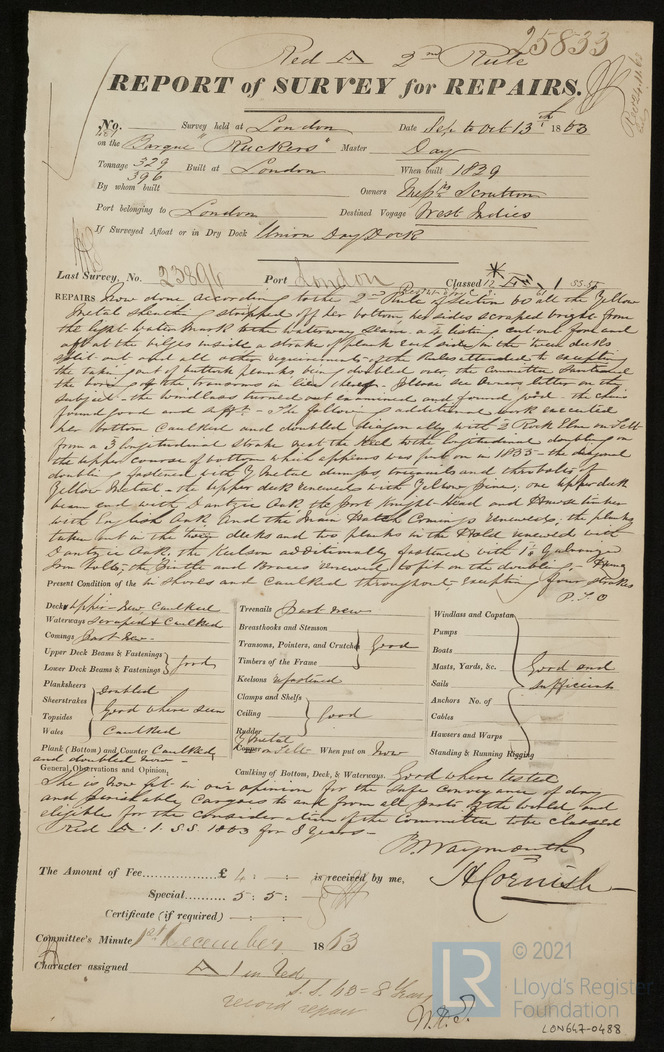 25833
Red A 2nd Rule
REPORT of SURVEY for REPAIRS.
No. Survey held at London Date Sep to Oct 13th 1863
on the Barque "Ruckers" Master Day
Tonnage 529 Built at London When built 1839
396
By whom built Owners Messrs Scrutton
Port belonging to London Destined Voyage West Indies
If Surveyed Afloat or in Dry Dock Union Dry Dock
Last Survey, No. 23894 Port London Classed
REPAIRS Now done according to the 2nd Rule of Section 60 all the Yellow
Metal sheathing stripped off her bottom her sides scraped bright from
the light water mark to the waterway seam. a listing cut out fore and
aft at the bilges inside a strake of plank each side in the tween decks
split out and all other requirements of the Rules attended to excepting
the taking out of buttock planks being doubled over, the Committee sanctioned
the boring of the transoms in lieu thereof. please see Owners letter on the
subject - the windlass turned out examined and found good - the chain
found good and sufft - The following additional work executed
her bottom Caulked and doubled diagonally with 2 Rock Elm on Felt
from a 3 longitudinal strake next the Keel to the longitudinal doubling on
the upper course of bottom which appears was put on in 1855 - the diagonal
doubling fastened with Y Metal dumps, treenails and thro bolts of
Yellow Metal - the upper deck renewed with Yellow pine, one upper deck
beam end with Dantzic Oak the port Knight-Head and Hawse timber
with English Oak and the Main Hatch Comings renewed, the planks
taken out in the tween decks and two planks in the Hold renewed with
Dantzic Oak, the Keelson additionally fastened with 16 Galvanized
Iron bolts, the Pintles and Braces renewed to fit on the doubling,
Present Condition of the in shores and caulked throughout, excepting four strakes
P.T.O
Decks Upper - New, Caulked
Waterways Scraped & Caulked
Comings Part New -
Upper Deck Beams & Fastenings
Lower Deck Beams & Fastenings
good
Planksheers doubled
Sheerstrakes
Topsides Good where seen
Wales Caulked
Plank (Bottom) and Counter Caulked
and doubled now -
Treenails Part new
Breasthooks and Stemson
Transoms, Pointers, and Crutches
Timbers of the Frame
Good
Keelsons refastened
Clamps and Shelfs
Ceiling
Rudder
good
Y Metal
Copper on Felt When put on Now
Windlass and Capstan
Pumps
Boats
Masts, Yards, &c.
Sails
Anchors No. of
Cables
Hawsers and Warps
Standing & Running Rigging
Good and
sufficient
General Observations and Opinion, Caulking of Bottom, Deck, & Waterways. Good where tested
She is now fit in our opinion for the safe Conveyance of dry
and perishable Cargoes to and from all parts of the world and
eligible for the consideration of the Committee to be classed
Red A. 1. S.S. 1863 for 8 Years -
B. Waymouth
The Amount of Fee £ 4 : - : is received by me,
J H Cornish
Special 5 : 5 : -
Certificate (if required) - : - : -
Committee's Minute 1st December 1863
Character assigned A 1 in red
S.S. 63 = 8 Years
record repair
© 2021
LR
Lloyd's Register
Foundation
LON647-0488